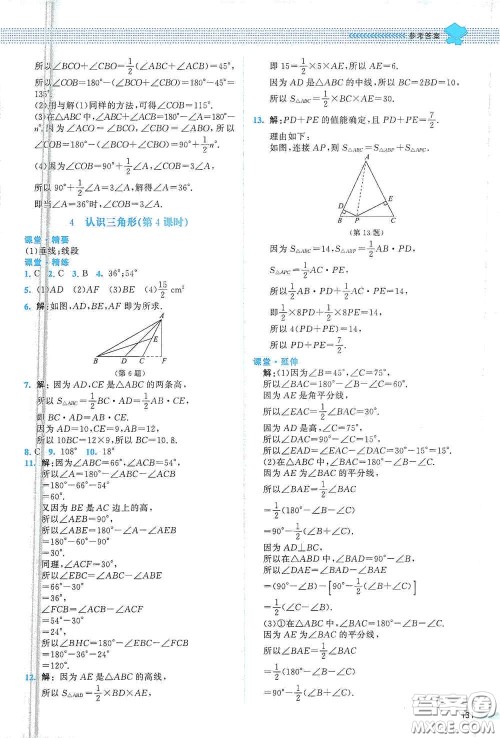 参考答案
所以∠BCO+∠CBO=1/2(∠ABC+∠ACB)=45°,
所以∠COB=180°-(∠BCO+∠CBO)=180°-45°=
135°.
(2)用与解(1)同样的方法,可得∠COB=115°.
(3)在△ABC中,∠ABC+∠ACB=180°-∠A=180°-
n°.因为∠ACO=∠BCO,∠CBO=∠ABO,所以
∠COB=180°-(∠BCO+∠CBO)=90°+1/2n°.
(4)因为∠COB=90°+1/2∠A,∠COB=3∠A,
所以90°+1/2∠A=3∠A,解得∠A=36°.
即当∠A=36°时,∠COB=3∠A.
4 认识三角形(第4课时)
课堂·精要
(1)垂线;线段
课堂·精练
1. C 2. C 3. B 4. 36°;54°
5. (1)AD (2)AF (3)BE (4)15/2 cm²
6. 解:如图,AD,BE,AF即为所求.
A
B D C F
E
(第6题)
7. 解:因为AD,CE是△ABC的两条高,
所以S△ABC=1/2BC·AD=1/2AB·CE,
即BC·AD=AB·CE.
因为AD=10,CE=9,AB=12,
所以10BC=12×9,所以BC=10.8.
8. C 9. 108° 10. 18°
11. 解:因为∠ABC=66°,∠ACB=54°,
所以∠A=180°-∠ABC-∠ACB
=180°-66°-54°
=60°.
又因为BE是AC边上的高,
所以∠AEB=90°,
所以∠ABE=180°-∠A-∠AEB
=180°-60°-90°
=30°.
同理,∠ACF=30°,
所以∠EBC=∠ABC-∠ABE
=66°-30°
=36°,
∠FCB=∠ACB-∠ACF
=54°-30°
=24°,
所以∠BHC=180°-∠EBC-∠FCB
=180°-36°-24°
=120°.
12. 解:因为AE是△ABD的高线,
所以S△ABD=1/2×BD×AE,
即15=1/2×5×AE,所以AE=6.
因为AD是△ABC的中线,所以BC=2BD=10,
所以S△ABC=1/2×BC×AE=30.
13. 解:PD+PE的值能确定,且PD+PE=7/2.
理由如下:
如图,连接AP,则S△ABC=S△ABP+S△APC.
A
D E
B P C
(第13题)
因为S△ABP=1/2AB·PD,
S△APC=1/2AC·PE,
所以1/2AB·PD+1/2AC·PE=14,
即1/2×8PD+1/2×8PE=14,
所以4(PD+PE)=14,
所以PD+PE=7/2.
课堂·延伸
解:(1)因为∠B=45°,∠C=75°,
所以∠BAC=180°-∠B-∠C=60°.
因为AE是角平分线,
所以∠EAC=1/2∠BAC=30°.
因为AD是高,∠C=75°,
所以∠DAC=90°-∠C=15°,
所以∠DAE=∠EAC-∠DAC=30°-15°=15°.
(2)在△ABC中,∠BAC=180°-∠B-∠C.
因为AE是∠BAC的平分线,
所以∠BAE=1/2∠BAC
=1/2(180°-∠B-∠C)
=90°-1/2(∠B+∠C).
因为AD⊥BC,
所以在△ABD中,∠BAD=90°-∠B,
所以∠DAE=∠BAD-∠BAE
=(90°-∠B)-[90°-1/2(∠B+∠C)]
=1/2(∠C-∠B).
(3)①在△ABC中,∠BAC=180°-∠B-∠C.
因为AE为∠BAC的平分线,
所以∠BAE=1/2∠BAC
=1/2(180°-∠B-∠C)
=90°-1/2(∠B+∠C).
答案圈
MXQE.COM